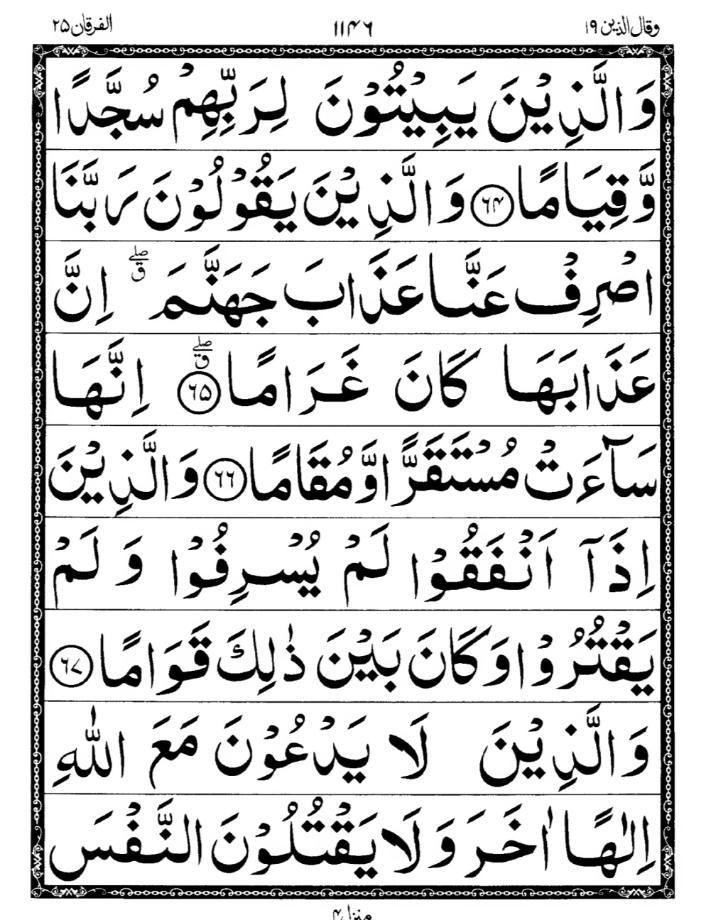 وقال الذين ۱۹ ۱۱۴۶ الفرقان ۲۵
وَالَّذِیْنَ یَبِیْتُوْنَ لِرَبِّهِمْ سُجَّدًا
وَّقِیَامًا ﴿۶۴﴾ وَالَّذِیْنَ یَقُوْلُوْنَ رَبَّنَا
اصْرِفْ عَنَّا عَذَابَ جَهَنَّمَ ۖق اِنَّ
عَذَابَهَا كَانَ غَرَامًا ﴿۶۵﴾ ۖق اِنَّهَا
سَآءَتْ مُسْتَقَرًّا وَّمُقَامًا ﴿۶۶﴾ وَالَّذِیْنَ
اِذَاۤ اَنْفَقُوْا لَمْ یُسْرِفُوْا وَلَمْ
یَقْتُرُوْا وَكَانَ بَیْنَ ذٰلِكَ قَوَامًا ﴿۶۷﴾
وَالَّذِیْنَ لَا یَدْعُوْنَ مَعَ اللّٰهِ
اِلٰهًا اٰخَرَ وَلَا یَقْتُلُوْنَ النَّفْسَ
منزل ۴